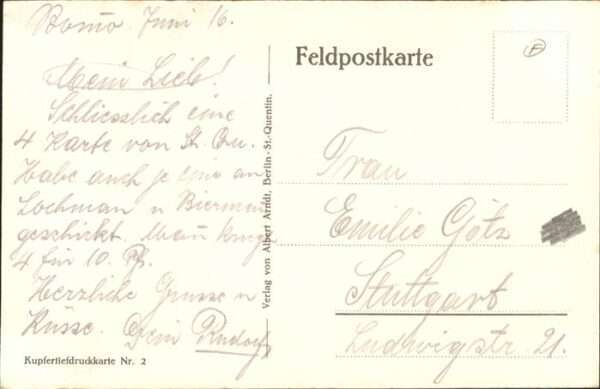 Juni 16.
Mein Lieb!
Schliesslich eine
4 Karte von St. Qu.
Habe auch je eine an
Lochman u Bierman
geschickt. Man kriegt
4 für 10. Pf.
Herzliche Grüsse u
Küsse. Dein Rudolf
Kupfertiefdruckkarte Nr. 2
Verlag von Albert Arndt, Berlin-St.-Quentin.
Feldpostkarte
Frau
Emilie Götz
Stuttgart
Ludwigstr. 21.